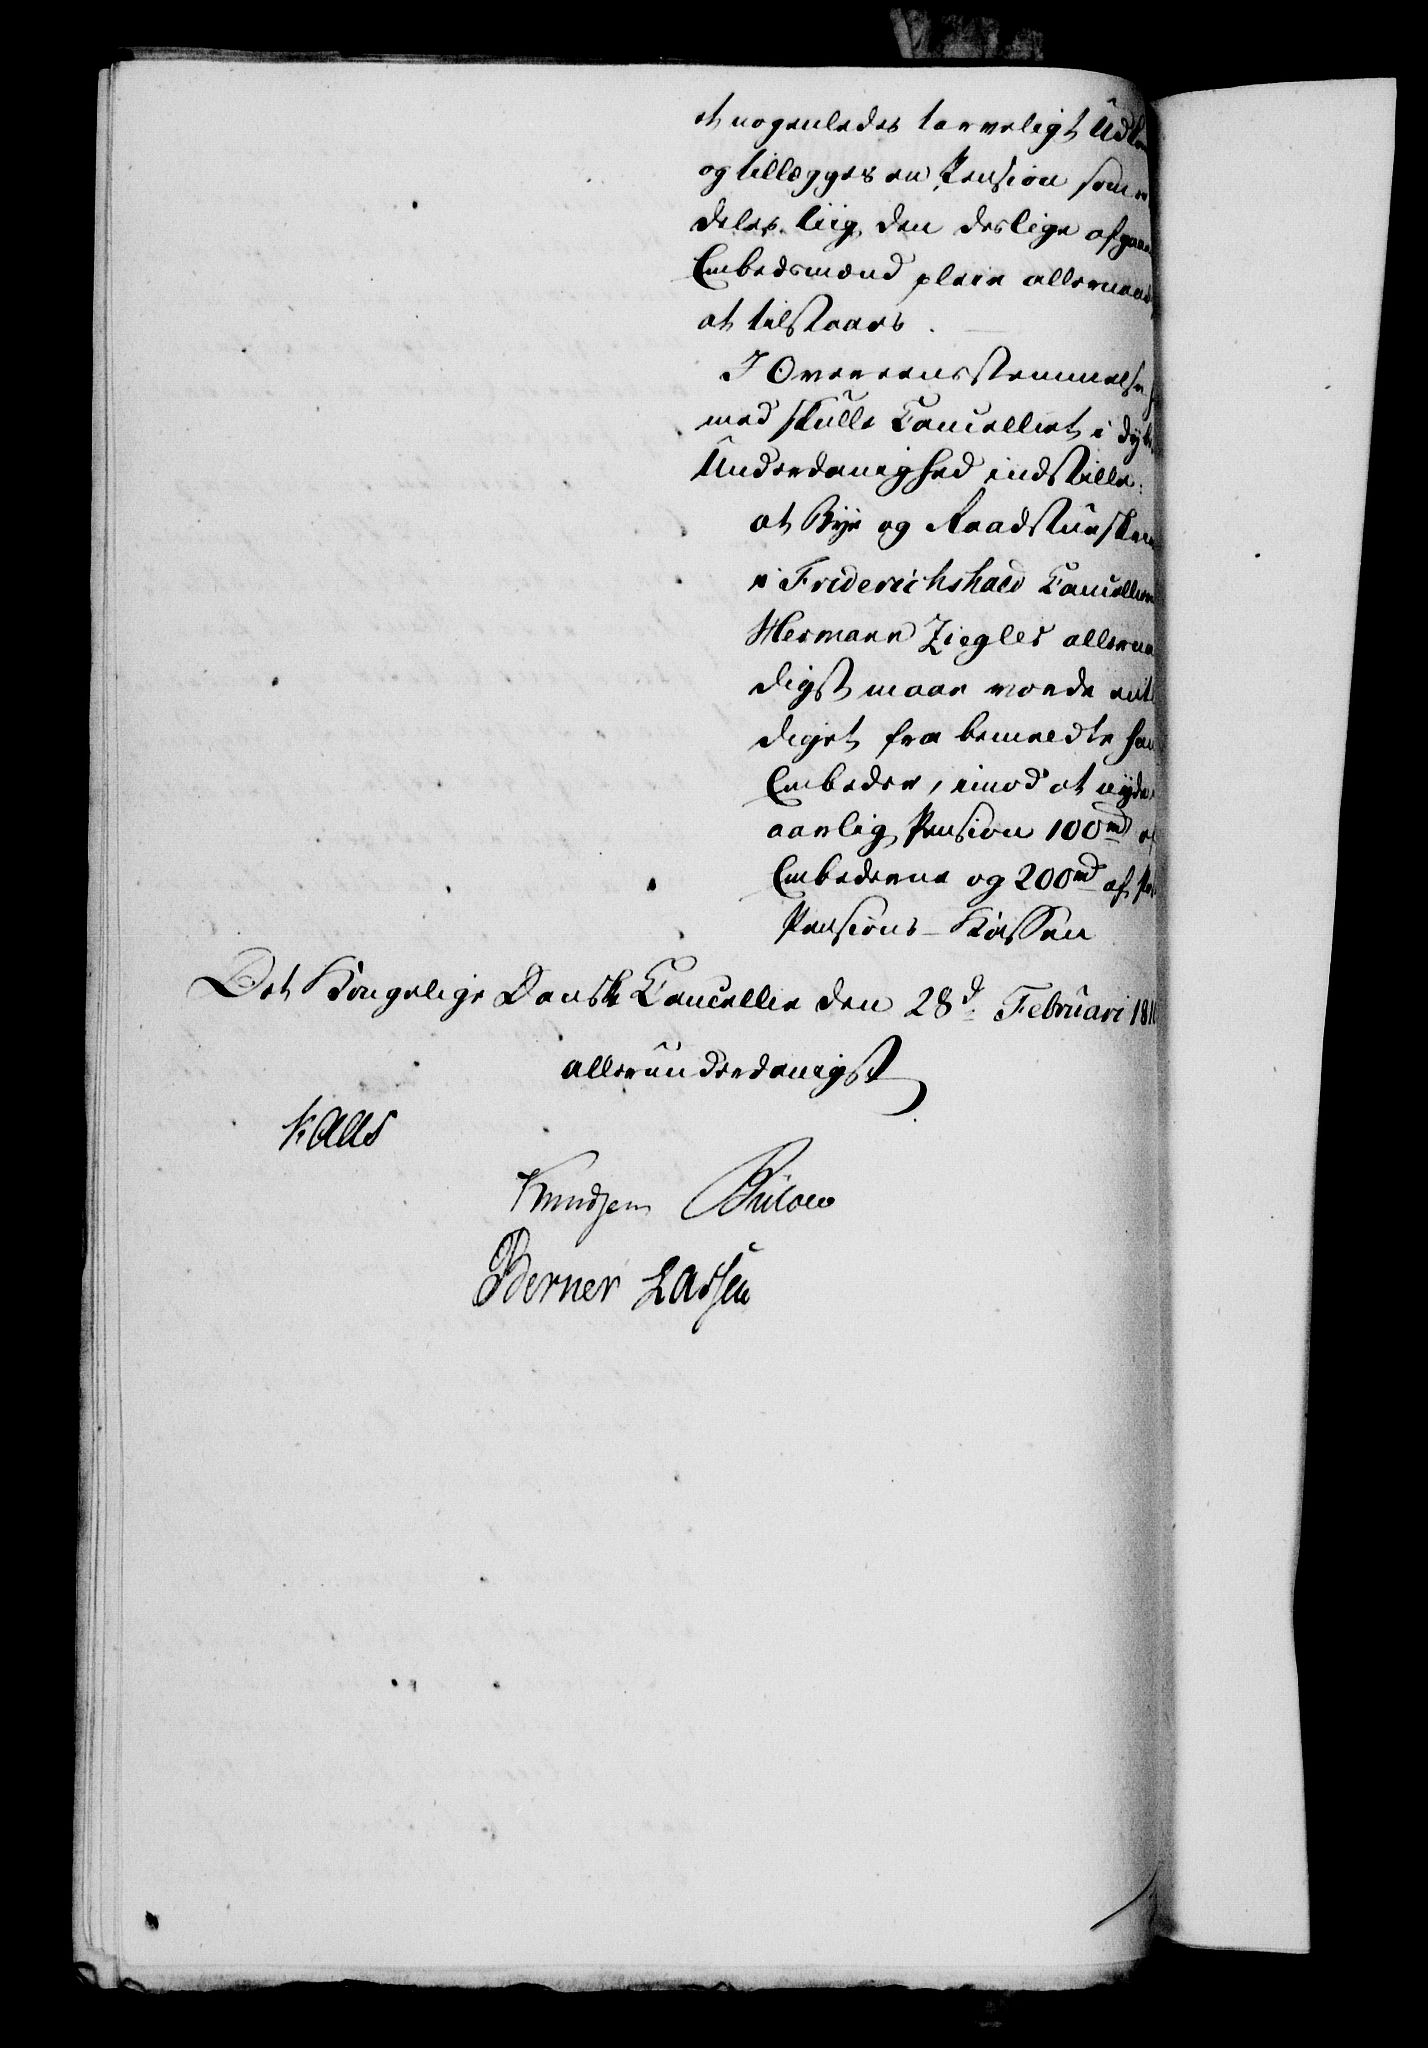 et nogenledes tarveligt Udko
og tillægges en Pension som
deles liig den deslige afgaae
Embedsmænd pleie allernaad
at tilstaaes.
I Overeensstemmelse
med skulle Cancelliet i dyb
Underdanighed indstille:
at Bye og Raadstueskri
i Friderichshald Cancellie
Hermann Ziegler allernaa
digst maae vorde entl
diget fra bemeldte han
Embeder, imod at nyde
aarlig Pension 100 rd af
Embederne og 200 rd af Po
Pensions-Kassen
Det Kongelige Danske Cancellie den 28d Februari 181
allerunderdanigst
Kaas
Knudsen Bülow
Berner Lassen